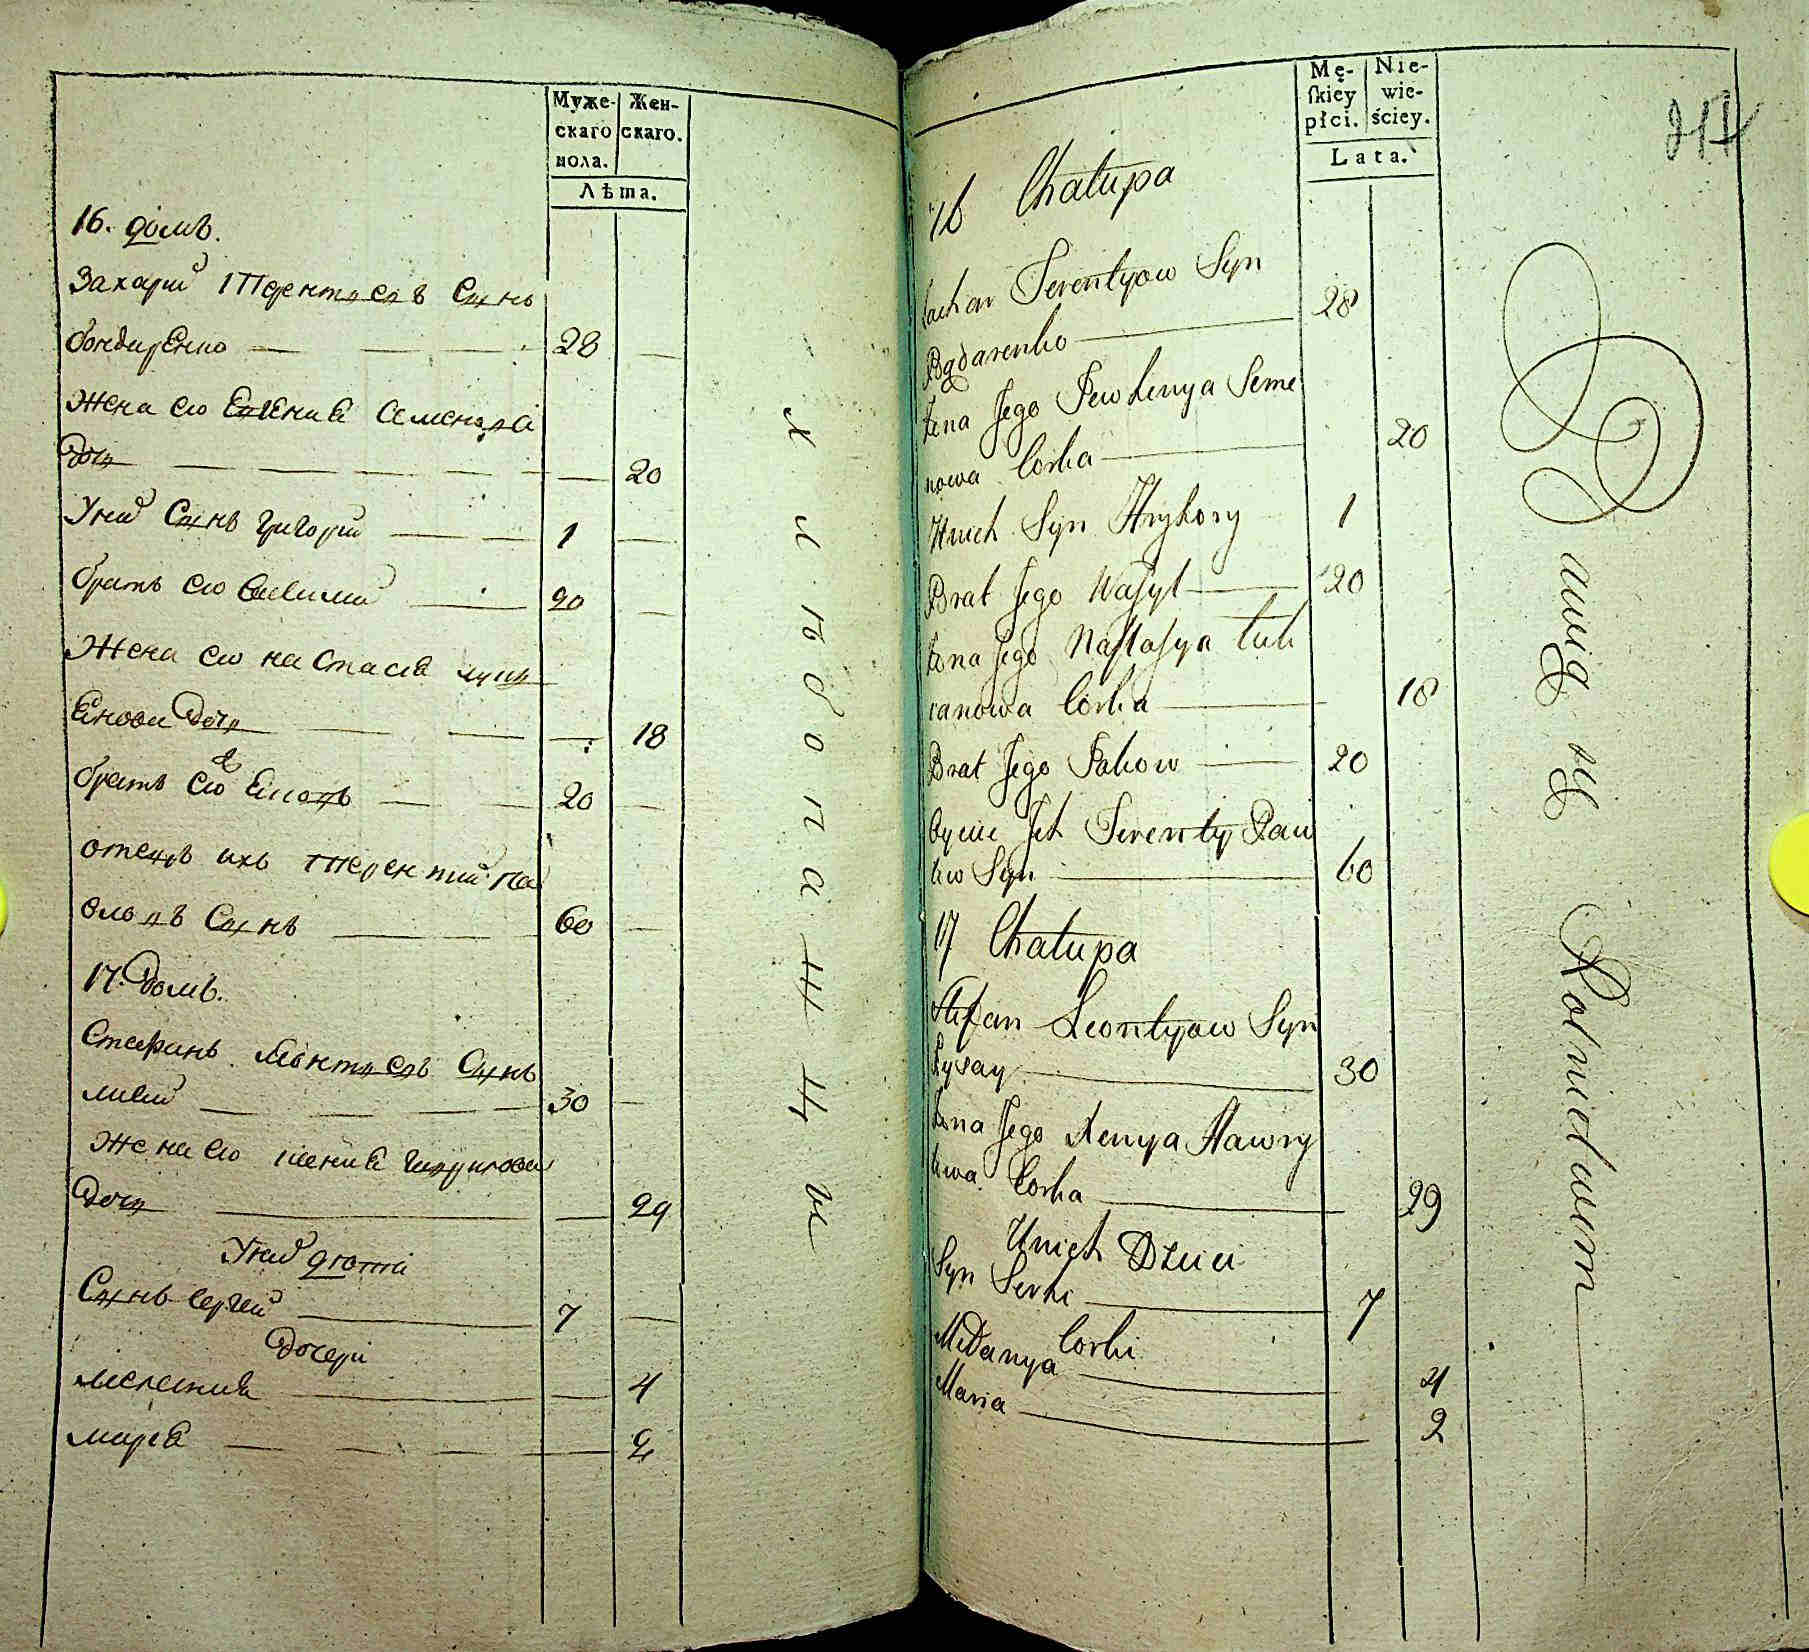 Муже-
скаго
пола.
Жен-
скаго.
Лѣта.
16. домъ.
Захарий Терентѣевъ Сынъ
бондаренко 28
Жена его Евгения Семенова
дочь 20
У них Сынъ григорий 1
братъ его 20
Жена его настасия
дочь 18
братъ его 20
отецъ ихъ терентий па
вловъ Сынъ 60
17. домъ.
Стефанъ Леонтѣевъ Сынъ
лисий 30
Жена его ксения гаврилова
дочь 29
У них дѣти
Сынъ Сергей 7
дочери
мелания 4
мария 2
хлѣбопашцы
Mę-
ſkiey
płci.
Nie-
wie-
ściey.
Lata.
16 Chałupa
Zachar Terentyow Syn
Bądarenko 28
Żena Jego Jewhenya Seme
nowa Corka 20
Hnich Syn Hryhory 1
Brat Jego Waſyl 20
Żena Jego Naſtaſya Łuk
ianowa Corka 18
Brat Jego Jakow 20
Oyciec Jch Terenty Paw
low Syn 60
17 Chałupa
Stefan Leontyow Syn
Łysay 30
Żena Jego Xenya Hawry
lowa Corka 29
Unich Dzieci
Syn Serhi 7
Corki
Melanya 4
Maria 2
Bawią się Rolnictwem